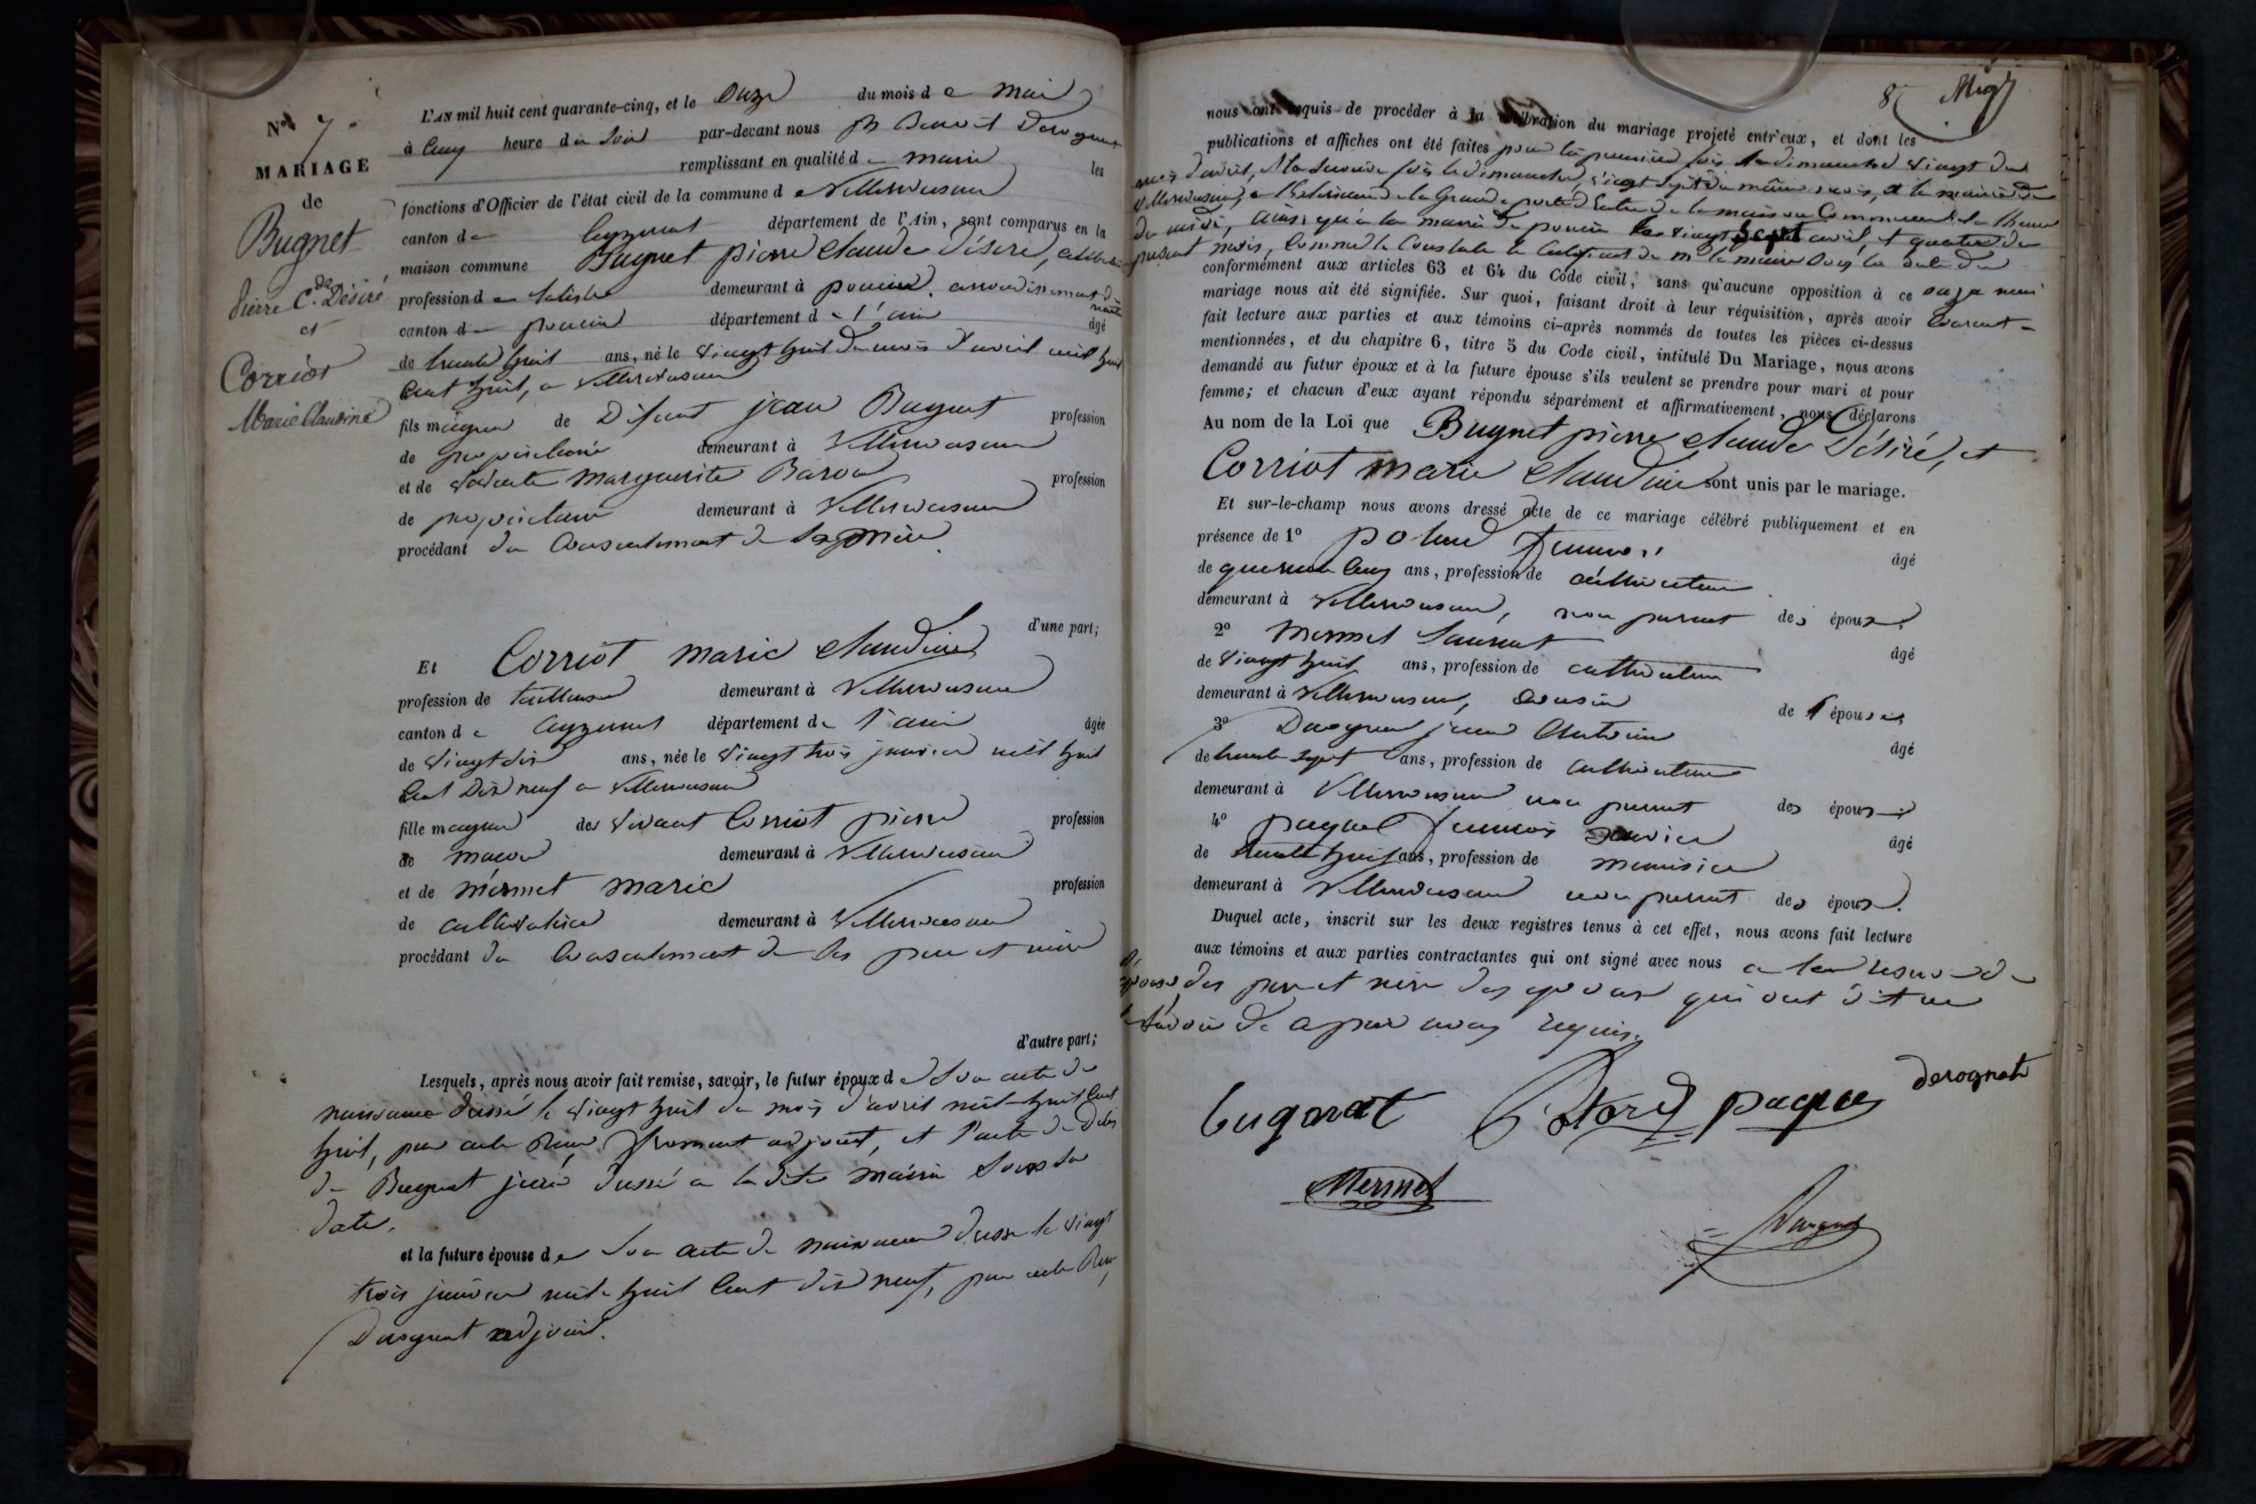 Nº 7.
MARIAGE
de
Bugnet
Pierre C.de Désiré
et
Corriot
Marie Claudine
L'AN mil huit cent quarante-cinq, et le onze du mois de mai
à cinq heure du soir par-devant nous Benoit Derognat
remplissant en qualité de maire les
fonctions d'Officier de l'état civil de la commune de Villereversure
canton de Ceyzeriat département de l'Ain, sont comparus en la
maison commune Bugnet pierre claude désiré, célibataire
profession de demeurant à poncin, arrondissement de
nantua
canton de poncin département de l'ain âgé
de trente huit ans, né le vingt huit du mois d'avril mil huit
cent huit, a Villereversure
fils majeur de Défunt jean Bugnet profession
de propriétaire demeurant à Villereversure
et de vivante Marguerite Baron profession
de propriétaire demeurant à Villereversure
procédant du consentement de sa mère.
d'une part;
Et Corriot marie claudine
profession de tailleuse demeurant à Villereversure
canton de Ceyzeriat département de l'ain âgée
de vingt six ans, née le vingt trois janvier mil huit
cent dix neuf a Villereversure
fille majeure des vivant Corriot pierre profession
de macon demeurant à Villereversure
et de mermet marie profession
de cultivatrice demeurant à Villereversure
procédant du consentement de ses père et mère
d'autre part;
Lesquels, après nous avoir fait remise, savoir, le futur époux de son acte de
naissance dressé le vingt huit du mois d'avril mil huit cent
huit, par adjoint, et l'acte de décès
de Bugnet dressé a la dite mairie sous sa
date.
et la future épouse de son acte de naissance dressé le vingt
trois janvier mil huit cent dix neuf, par
Derognat adjoint.
8
nous ont requis de procéder à la célébration du mariage projeté entr'eux, et dont les
publications et affiches ont été faites pour la première fois le dimanche vingt du
mois d'avril, et la seconde fois le dimanche vingt sept du même mois, a la mairie de
Villereversure, a l'extérieur de la grande porte d'entrée de la maison commune a l'heure
de midi, ainsi qu'a la mairie de poncin les vingt sept avril, et quatre du
présent mois, comme le constate le certificat de mr le maire sous la date du
conformément aux articles 63 et 64 du Code civil, sans qu'aucune opposition à ce onze mai
mariage nous ait été signifiée. Sur quoi, faisant droit à leur réquisition, après avoir courant
fait lecture aux parties et aux témoins ci-après nommés de toutes les pièces ci-dessus
mentionnées, et du chapitre 6, titre 5 du Code civil, intitulé Du Mariage, nous avons
demandé au futur époux et à la future épouse s'ils veulent se prendre pour mari et pour
femme; et chacun d'eux ayant répondu séparément et affirmativement, nous déclarons
Au nom de la Loi que Bugnet pierre claude Désiré, et
Corriot marie claudine sont unis par le mariage.
Et sur-le-champ nous avons dressé acte de ce mariage célébré publiquement et en
présence de 1º âgé
de quarante cinq ans, profession de cultivateur
demeurant à Villereversure, non parent des époux.
2º Mermet Laurent âgé
de vingt huit ans, profession de cultivateur
demeurant à Villereversure, cousin de l'épouse
3º Derognat jean Antoine âgé
de trente sept ans, profession de cultivateur
demeurant à Villereversure non parent des époux
4º paquet françois âgé
de trente huit ans, profession de menuisier
demeurant à Villereversure non parent des époux.
Duquel acte, inscrit sur les deux registres tenus à cet effet, nous avons fait lecture
aux témoins et aux parties contractantes qui ont signé avec nous a la réserve de
l'épouse, des père et mère des époux qui ont dit ne
le savoir de ce par nous requis.
bugnet paque derognat
Mermet